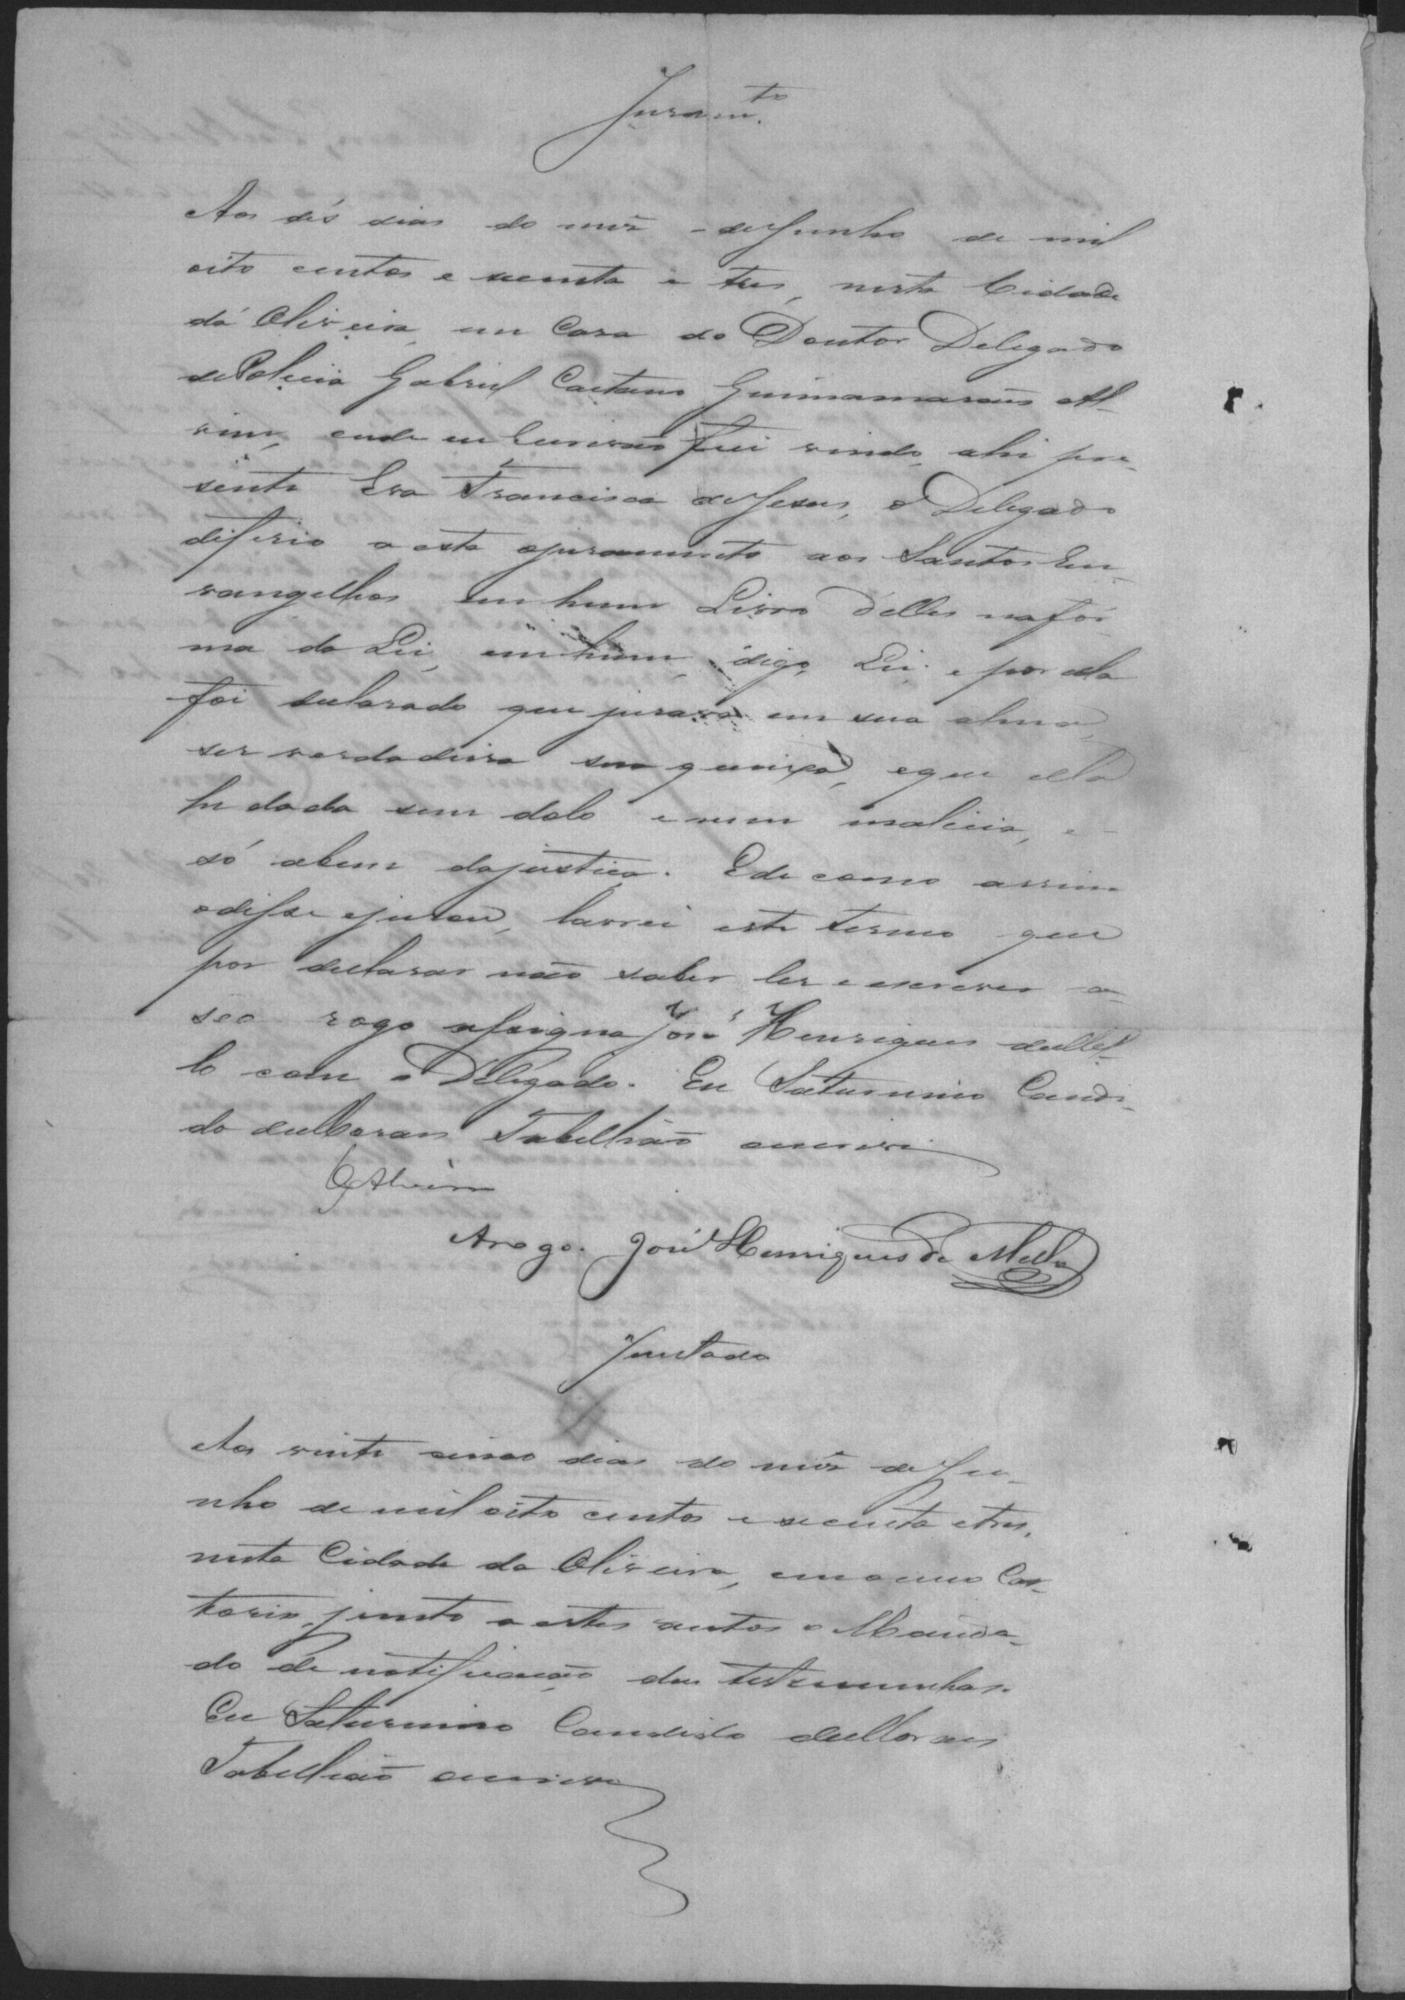 Juram.to
Aos dés dias do mez de Junho de mil
oito centos e secenta e tres, nesta Cidade
dá Oliveira, em Casa do Doutor Delegado
de Policia Gabriel Caetano Guimamaraẽs Al-
vim, onde eu Escrivaõ fui vindo, ahi pre-
sente Eva Francisca de Jesus, o Delegado
diferio a esta ojuramento aos Santos Em-
vangelhos em hum Livro délles na fór-
ma da Lei, em hum, digo, Lei; e por ella
foi declarado que jurava em sua alma,
ser verdadeira sua queixa, e que ella
he dada sem dolo e nem malicia, e
só abem da justiça. E de como assim
o disse e jurou, lavrei este termo que
por declarar naõ saber ler e escrever a
seo rogo assigna José Henriques de Mel-
lo com o Delegado. Eu Saturnino Candi-
do de Moraes Tabelliaõ escrevi
GAlvim
Arogo. José Henriques de Mello
Juntada
Aos vinte cinco dias do mez de Ju-
nho de mil oito centos e secenta e tres,
nesta Cidade da Oliveira, em o meu Car-
torio, junto a estes autos o Manda-
do de notificaçaõ das testemunhas.
Eu Saturnino Candido de Moraes
Tabelliaõ escrevi